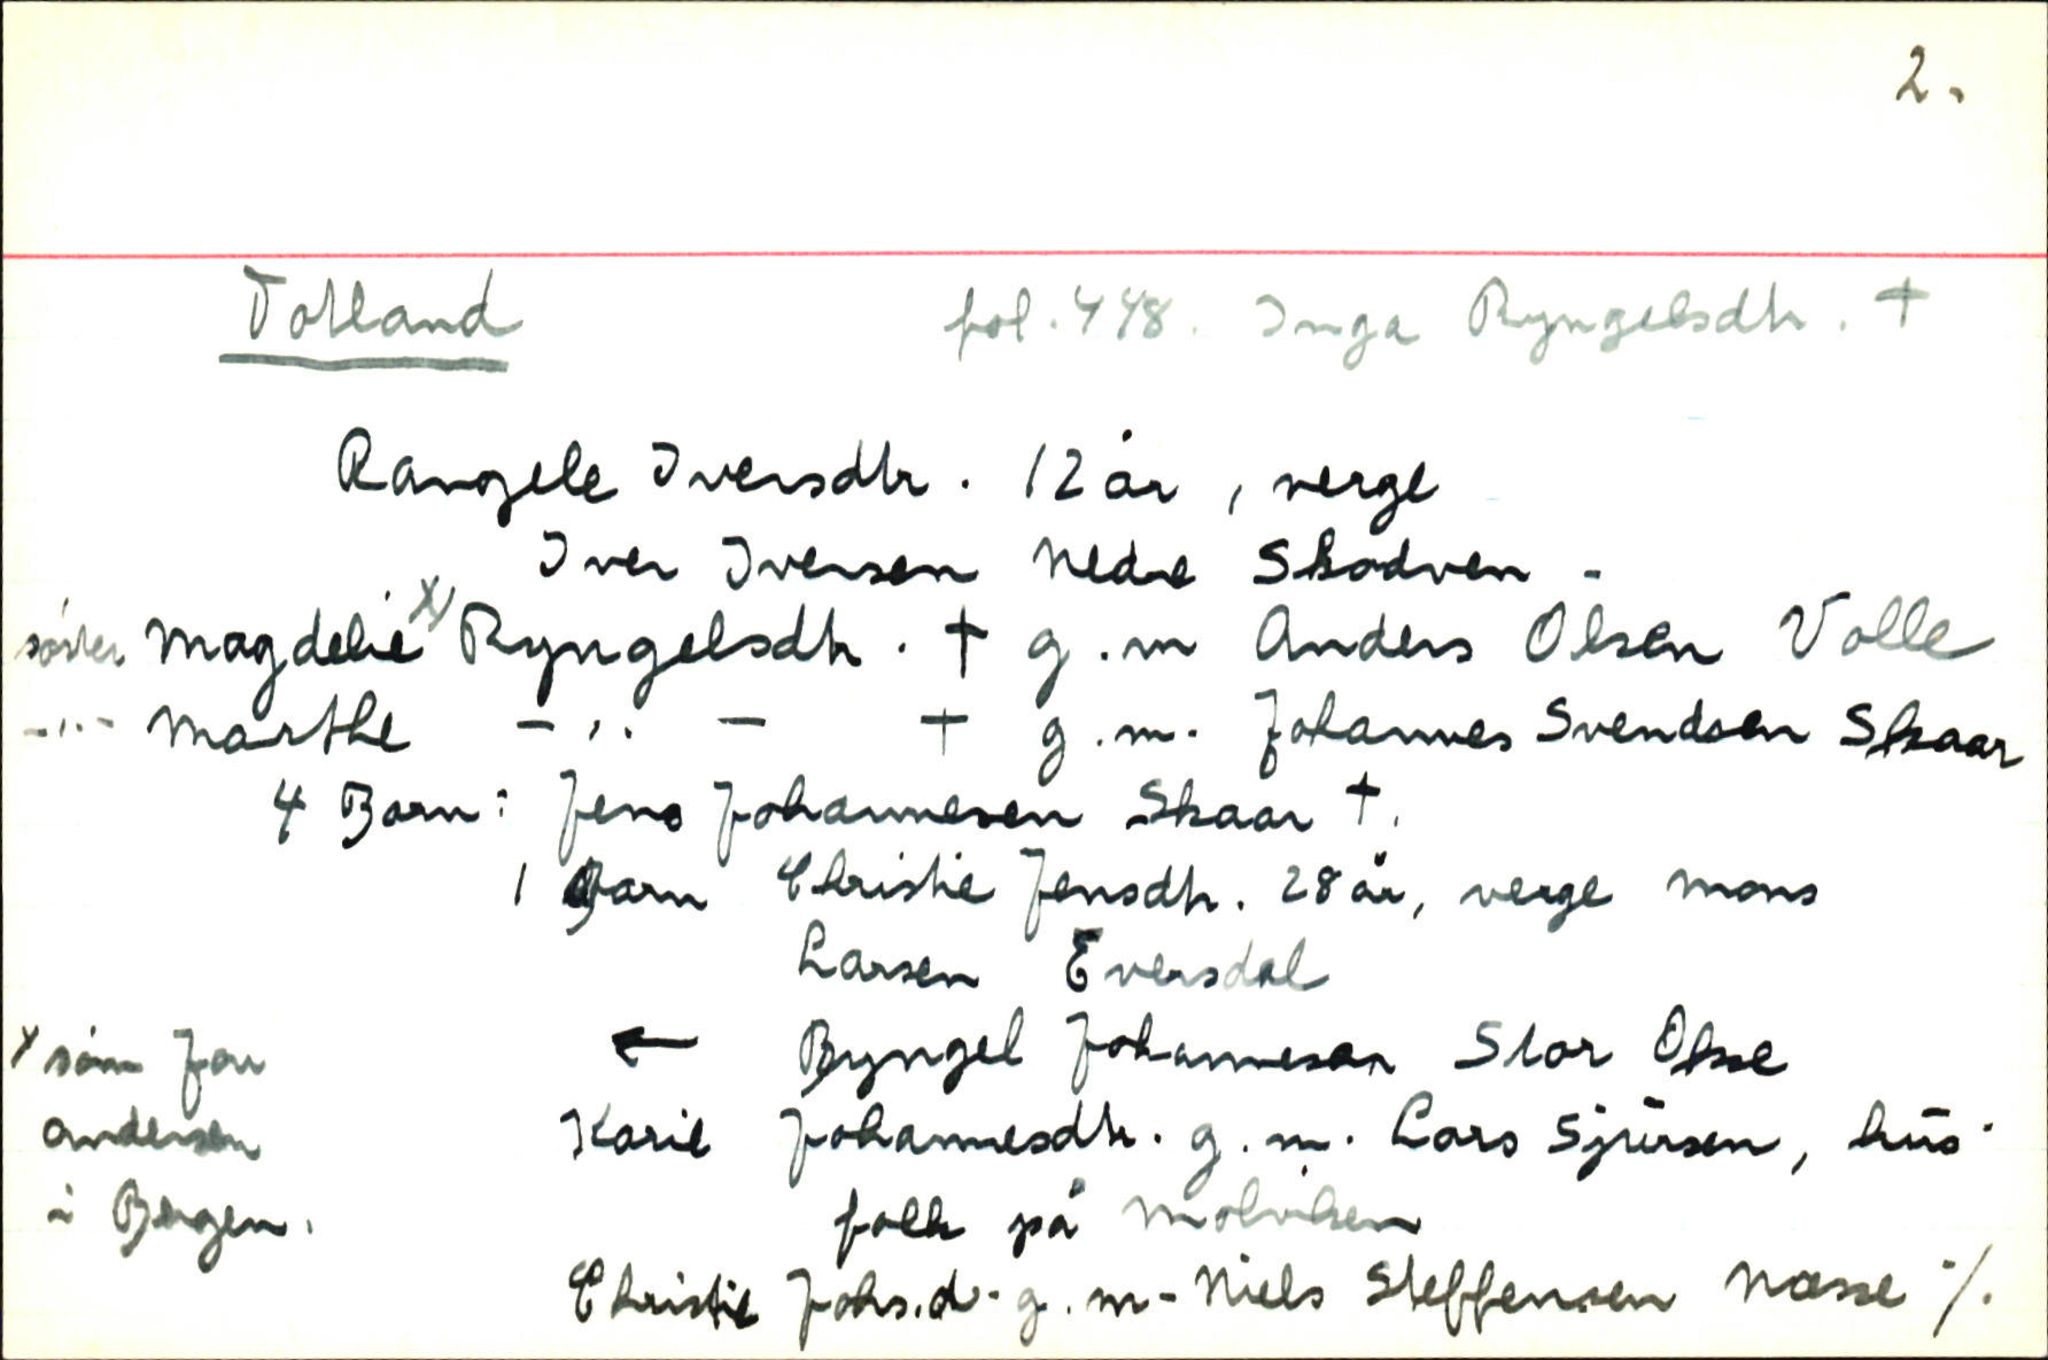 2.
Totland fol. 448. Inga Ryngelsdtr. †
Rangele Iversdtr. 12 år, verge
Iver Iversen Nedre Skodven -
søster Magdelie x) Ryngelsdtr. † g.m Anders Olsen Volle
-"- Marthe -"- † g.m. Johannes Svendsen Skaar
4 Barn: Jens Johannesen Skaar †.
1 Barn Christie Jensdtr. 28 år, verge Mons
Larsen Eversdal
← Byngel Johannesen Stor Okse
Karie Johannesdtr. g.m. Lars Sjursen, hus-
folk på Molviken
Christie Johs.d. g.m. Niels Steffensen Nasse ./.
x søn Jon
Andersen
i Bergen.